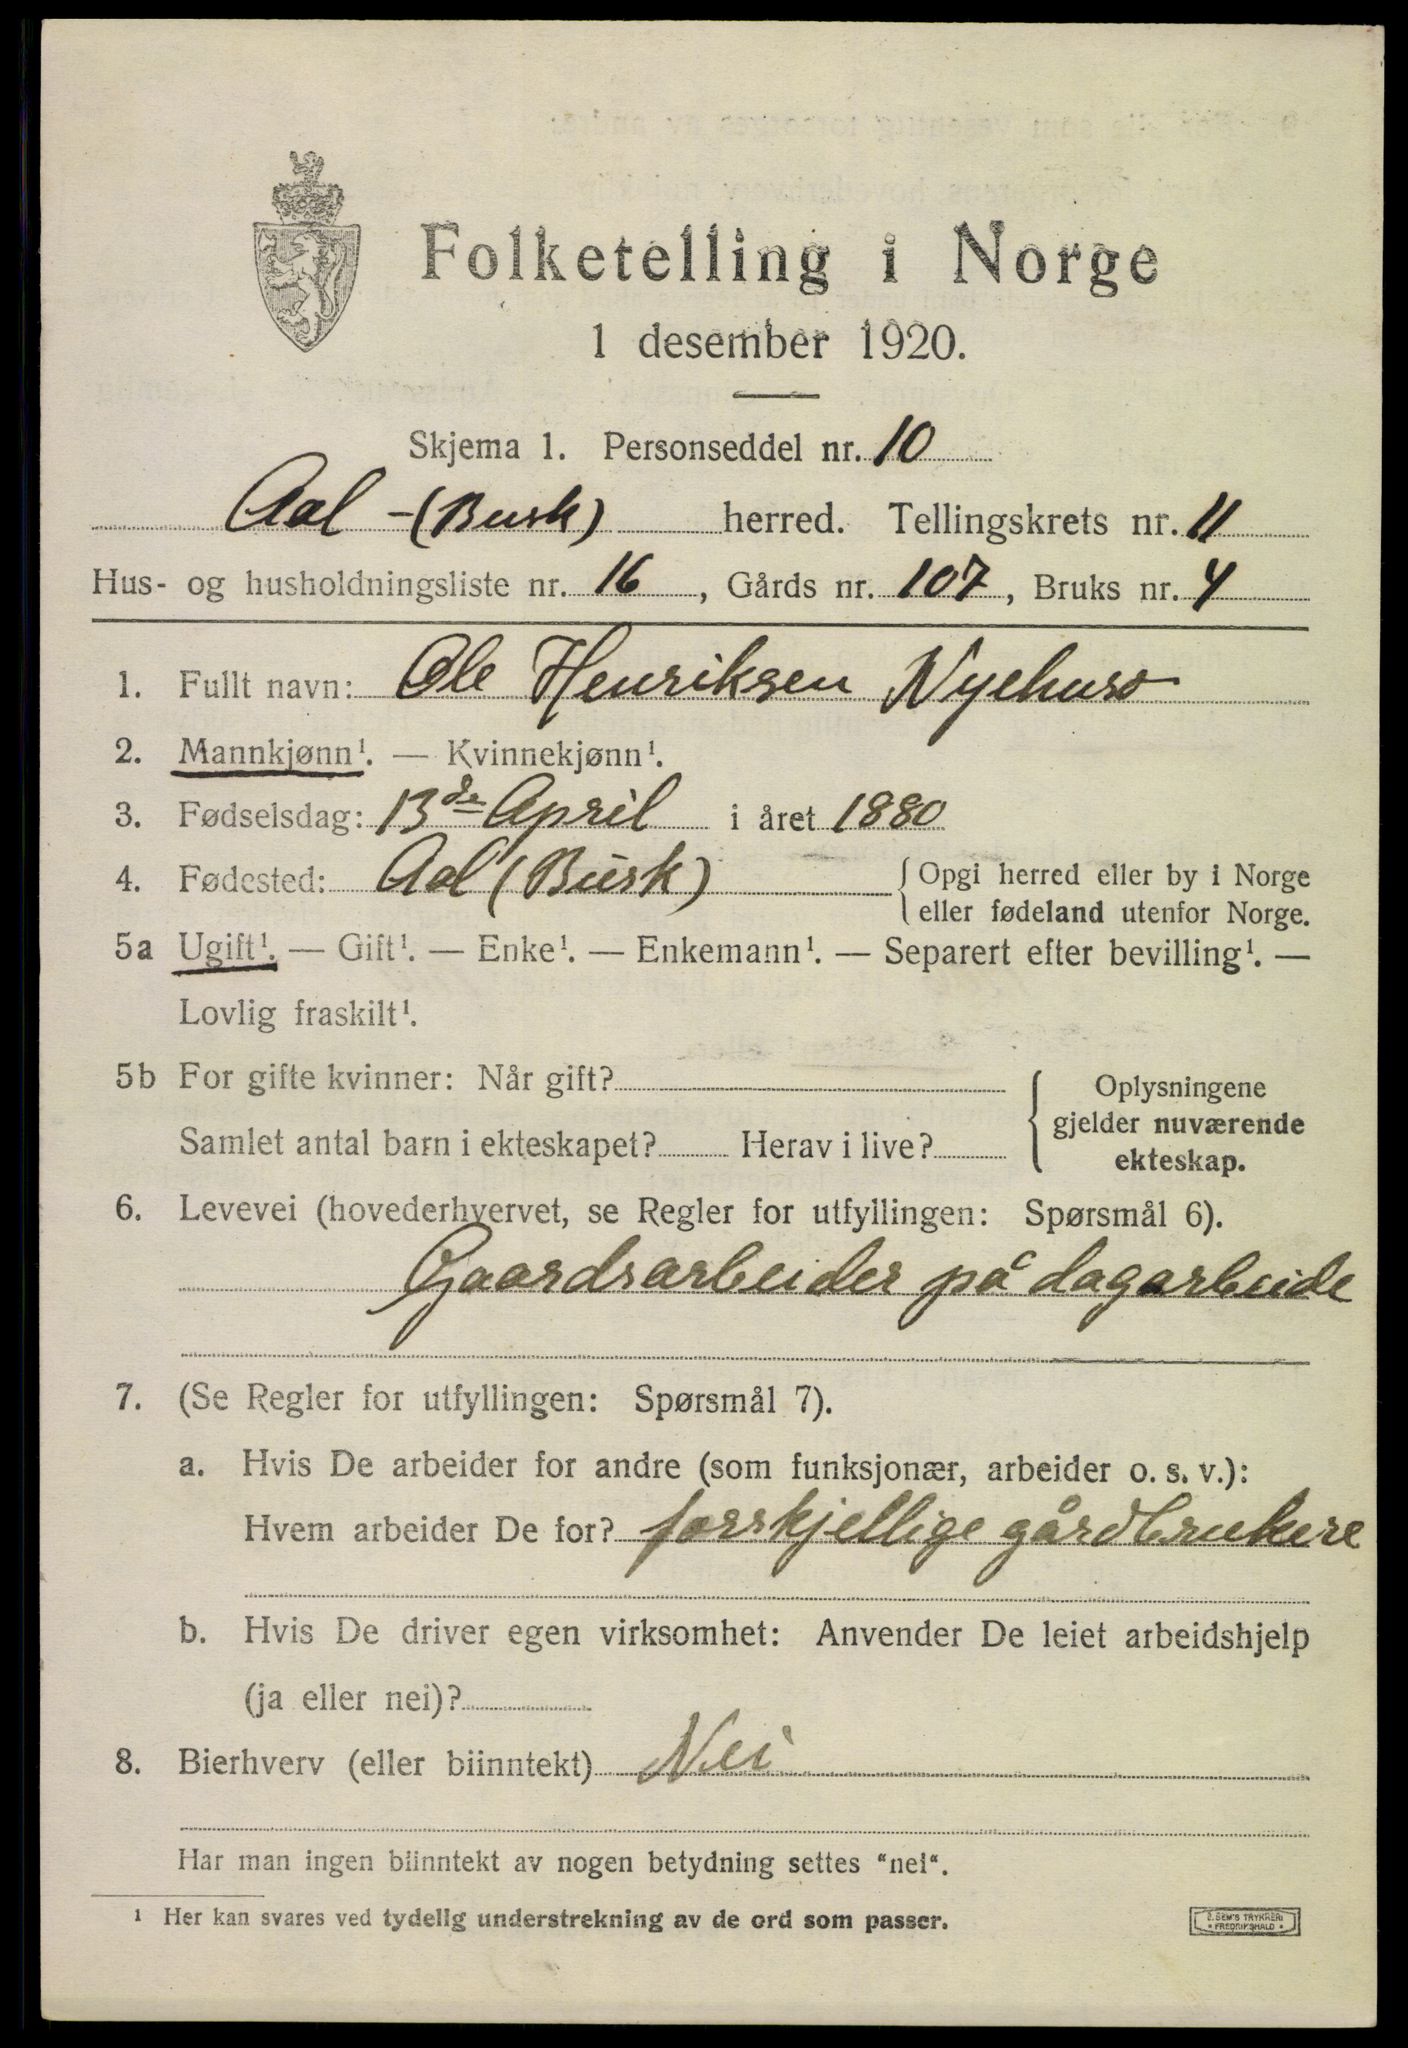 Folketelling i Norge
1 desember 1920.
Skjema 1. Personseddel nr. 10
Aal - (Busk) herred. Tellingskrets nr. 11
Hus- og husholdningsliste nr. 16, Gårds nr. 107, Bruks nr. 4
1. Fullt navn: Ole Henriksen Nyehuso
2. Mannkjønn¹. — Kvinnekjønn¹.
3. Fødselsdag: 13de April i året 1880
4. Fødested: Aal (Busk) {Opgi herred eller by i Norge
eller fødeland utenfor Norge.
5a Ugift¹. — Gift¹. — Enke¹. — Enkemann¹. — Separert efter bevilling¹. —
Lovlig fraskilt¹.
5b For gifte kvinner: Når gift?
Samlet antal barn i ekteskapet? Herav i live?
{Oplysningene
gjelder nuværende
ekteskap.
6. Levevei (hovederhvervet, se Regler for utfyllingen: Spørsmål 6).
Gaardsarbeider på dagarbeide
7. (Se Regler for utfyllingen: Spørsmål 7).
a. Hvis De arbeider for andre (som funksjonær, arbeider o. s. v.):
Hvem arbeider De for? forskjellige gårdbrukere
b. Hvis De driver egen virksomhet: Anvender De leiet arbeidshjelp
(ja eller nei)?
8. Bierhverv (eller biinntekt) Nei
Har man ingen biinntekt av nogen betydning settes “nei“.
¹ Her kan svares ved tydelig understrekning av de ord som passer.
E. SEM'S TRYKKERI
• FREDRIKSHALD •